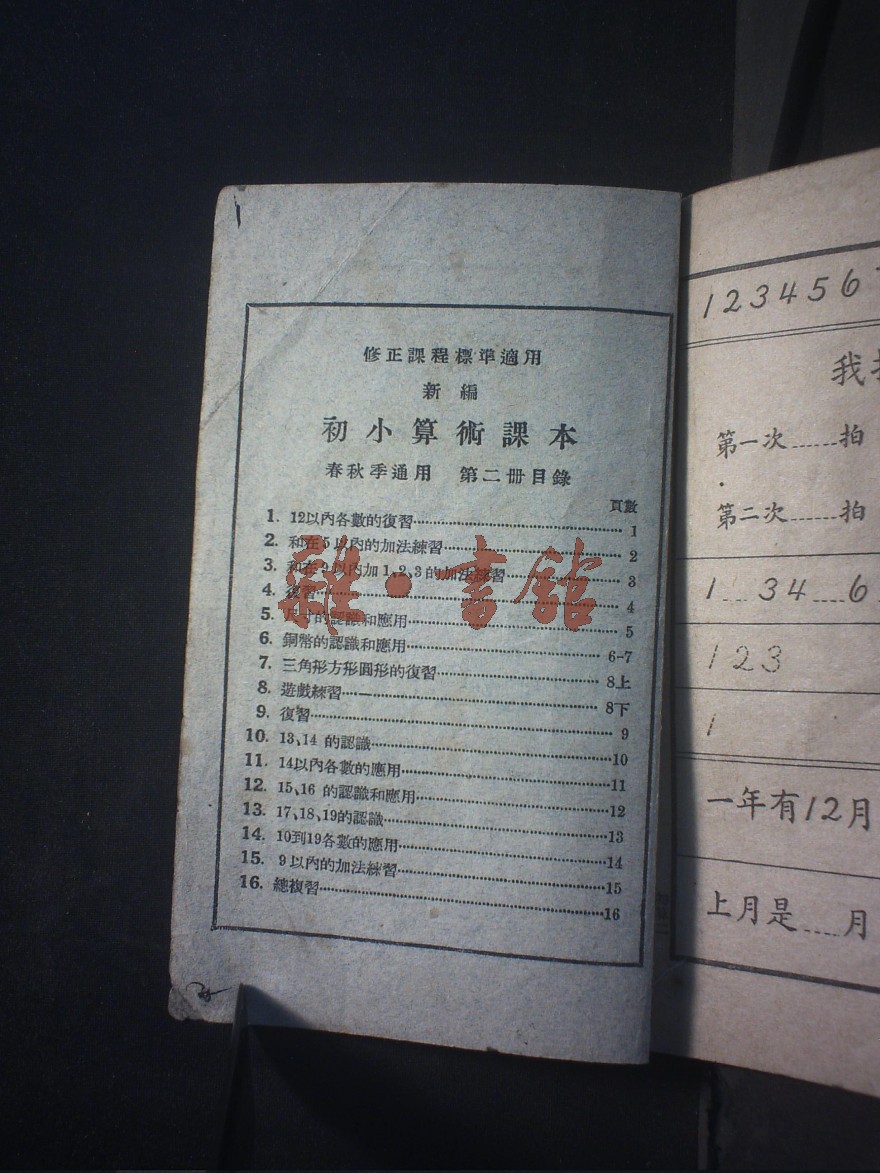 修正課程標準適用
新編
初小算術課本
春秋季通用 第二冊目錄
頁數
1. 12以內各數的復習 1
2. 和在5以內的加法練習 2
3. 和在9以內加1、2、3的加法練習 3
4. 復習 4
5. 尺寸的認識和應用 5
6. 銅幣的認識和應用 6-7
7. 三角形方形圓形的復習 8上
8. 遊戲練習 8下
9. 復習 9
10. 13、14 的認識 10
11. 14以內各數的應用 11
12. 15、16 的認識和應用 12
13. 17、18、19的認識 13
14. 10到19各數的應用 14
15. 9以內的加法練習 15
16. 總複習 16
雜·書館
123456
我
第一次......拍
第二次......拍
1...34...6
123
1
一年有12月
上月是....月